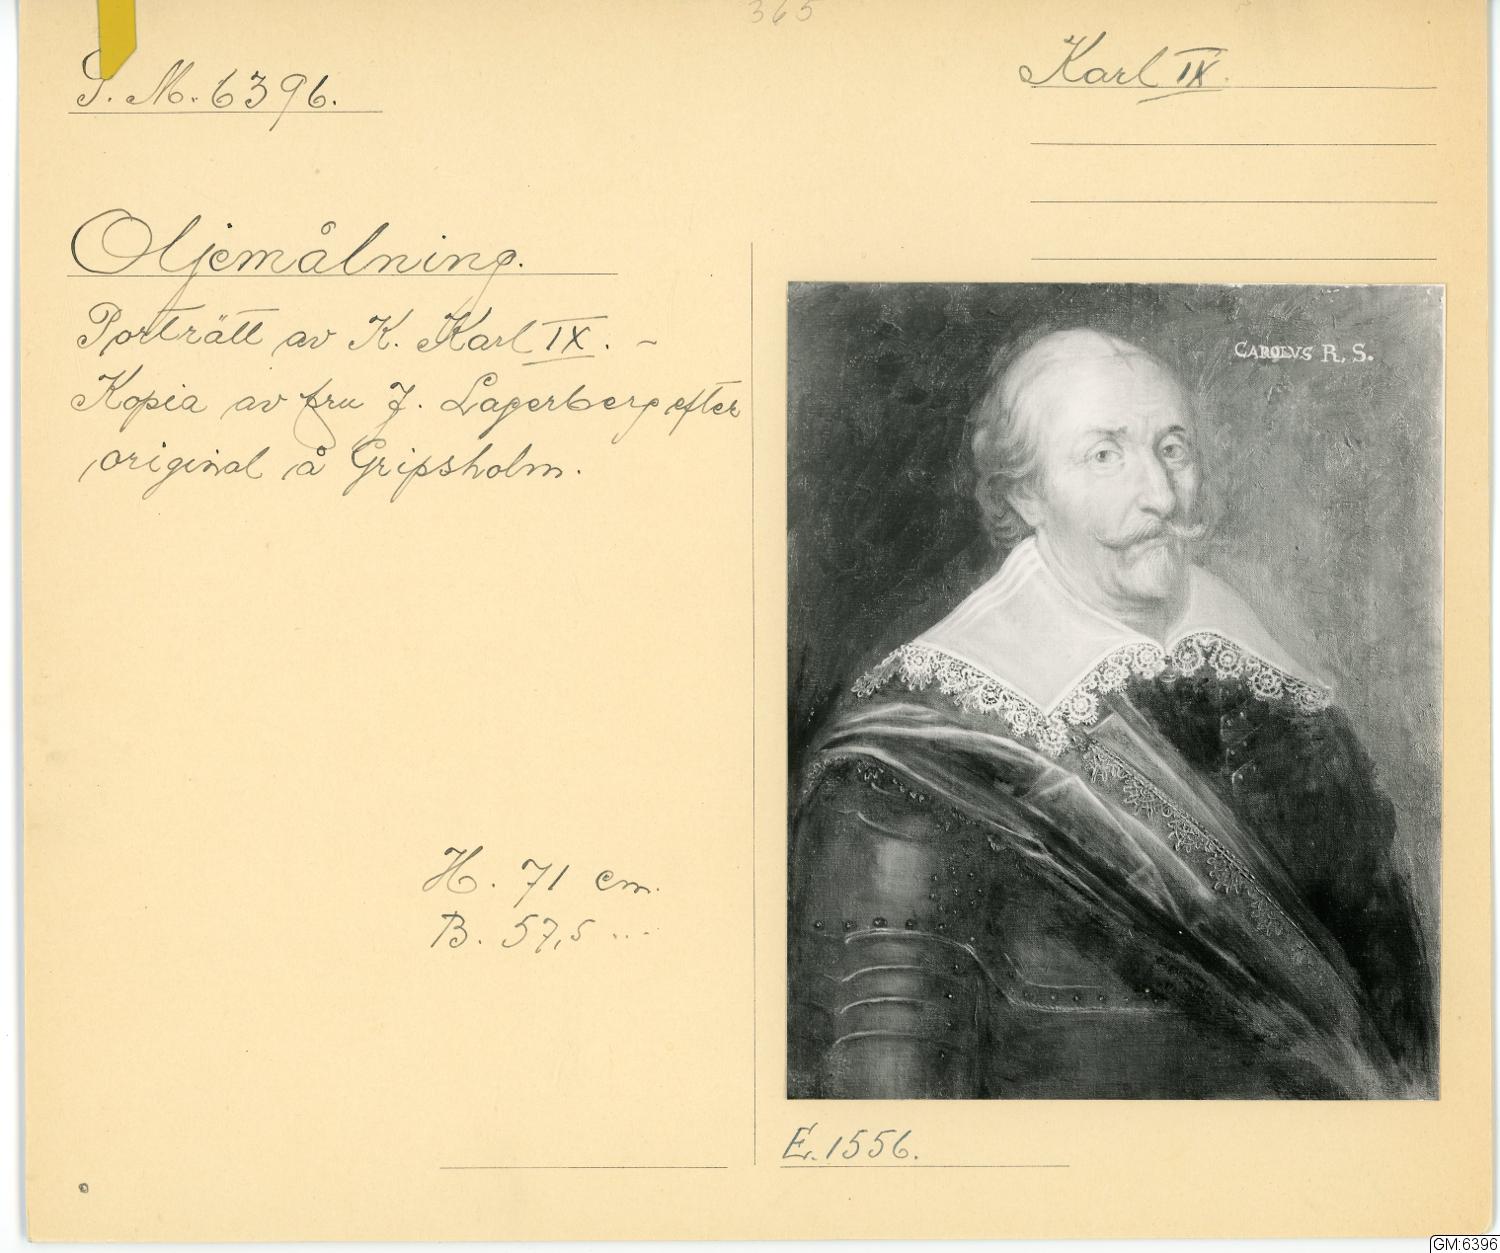 365
G. M. 6396.
Karl IX.
Oljemålning.
Porträtt av K. Karl IX. –
Kopia av fru J. Lagerberg efter
original å Gripsholm.
CAROLVS R. S.
H. 71 cm.
B. 57,5 ...
E. 1556.
GM:6396